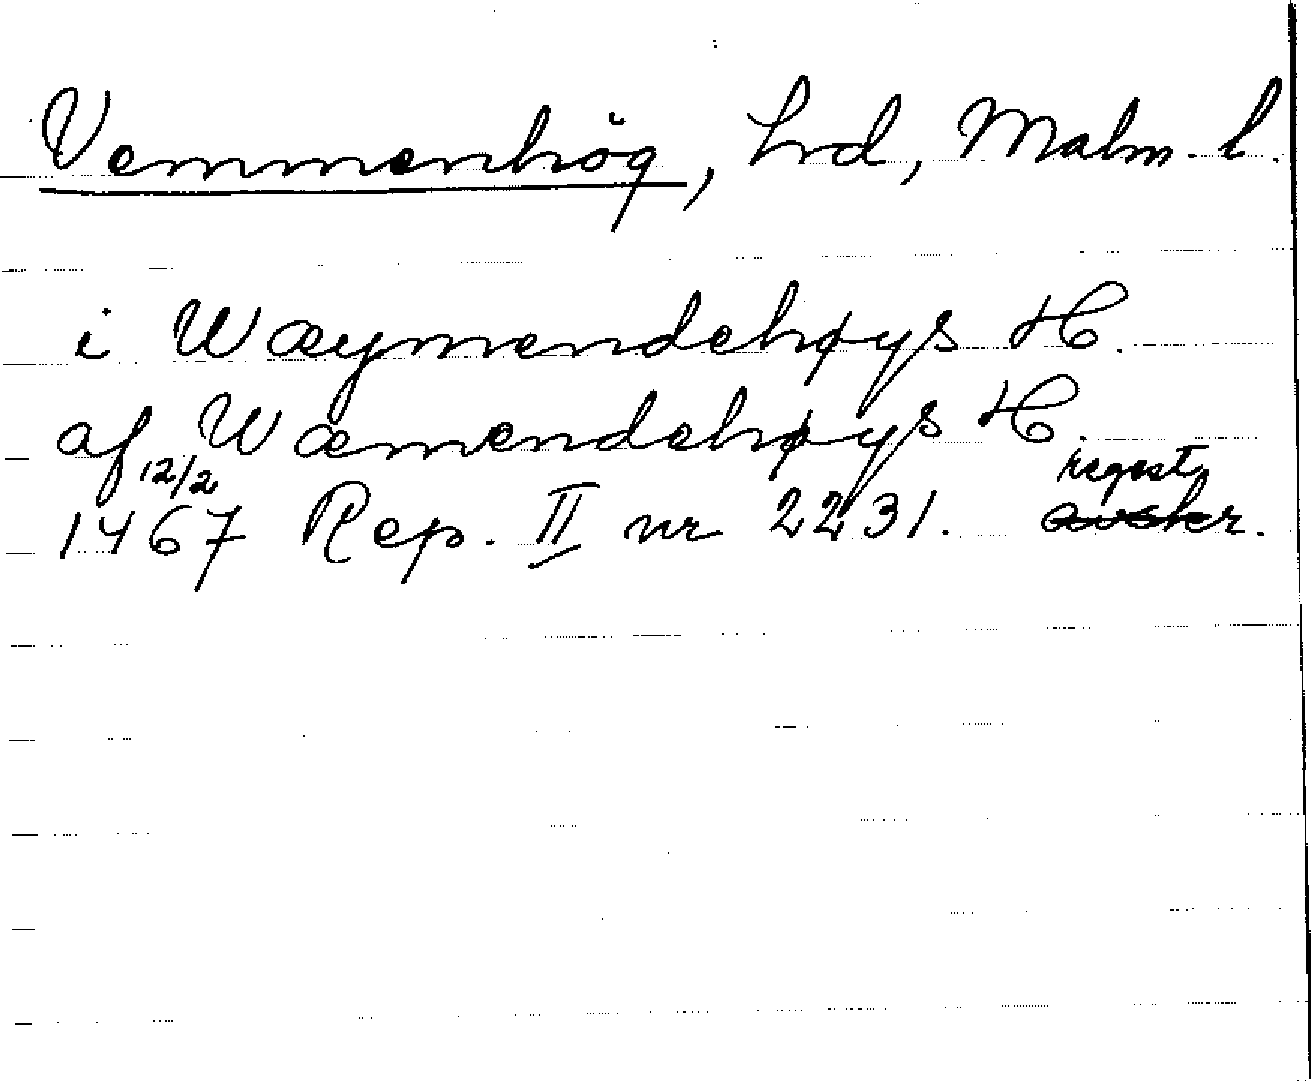 Vemmenhög, hrd, Malm. l.
i Wæymendehøys H.
af Wæmendehøys H.
12/2 regest
1467 Rep. II nr 2231. avskr.